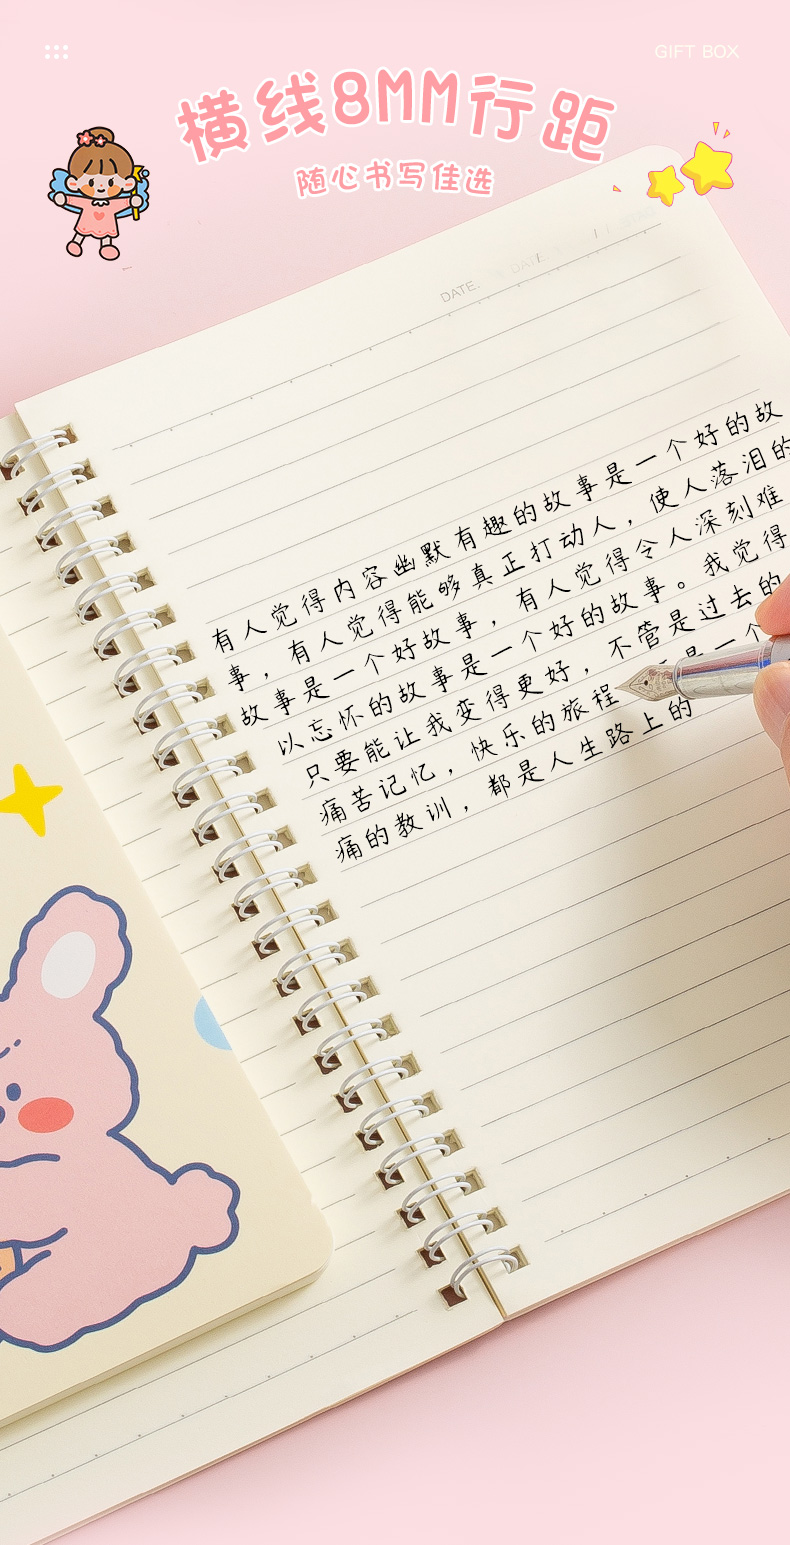 GIFT BOX
横线8MM行距
随心书写佳选
DATE:
有人觉得内容幽默有趣的故事是一个好的故
事，有人觉得能够真正打动人，使人落泪的
故事是一个好故事，有人觉得令人深刻难
以忘怀的故事是一个好的故事。我觉得
只要能让我变得更好，不管是过去的
痛苦记忆，快乐的旅程 是一个
痛的教训，都是人生路上的